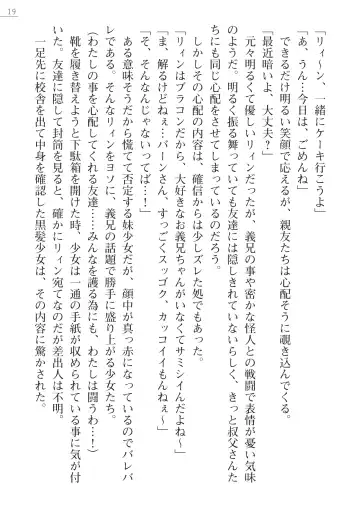 19
「リィ〜ン、一緒にケーキ行こうよ」
「あ、うん…今日は、ごめんね」
できるだけ明るい笑顔で応えるが、親友たちは心配そうに覗き込んでくる。
「最近暗いよ、大丈夫？」
元々明るくて優しいリィンだったが、義兄の事や密かな怪人との戦闘で表情が憂い気味
のようだ。明るく振る舞っていても友達には隠しきれていないらしく、きっと叔父さんた
ちにも同じ心配をさせてしまっているのだろう。
しかしその心配の内容は、確信からは少しズレた処でもあった。
「リィンはブラコンだから、大好きなお義兄ちゃんがいなくてサミシイんだよね〜」
「ま、解るけどねぇ…バーンさん、すっごくスッゴク、カッコイイもんねぇ〜」
「そ、そんなんじゃないってば…！」
ある意味そうだから慌てて否定する妹少女だが、顔中が真っ赤になっているのでバレバ
レである。そんなリィンをヨソに、義兄の話題で勝手に盛り上がる少女たち。
（わたしの事を心配してくれる友達……みんなを護る為にも、わたしは闘うわ…！）
靴を履き替えようと下駄箱を開けた時、少女は一通の手紙が収められている事に気が付
いた。友達に隠して封筒を見ると、確かにリィン宛てなのだが差出人は不明。
一足先に校舎を出て中身を確認した黒髪少女は、その内容に驚かされた。